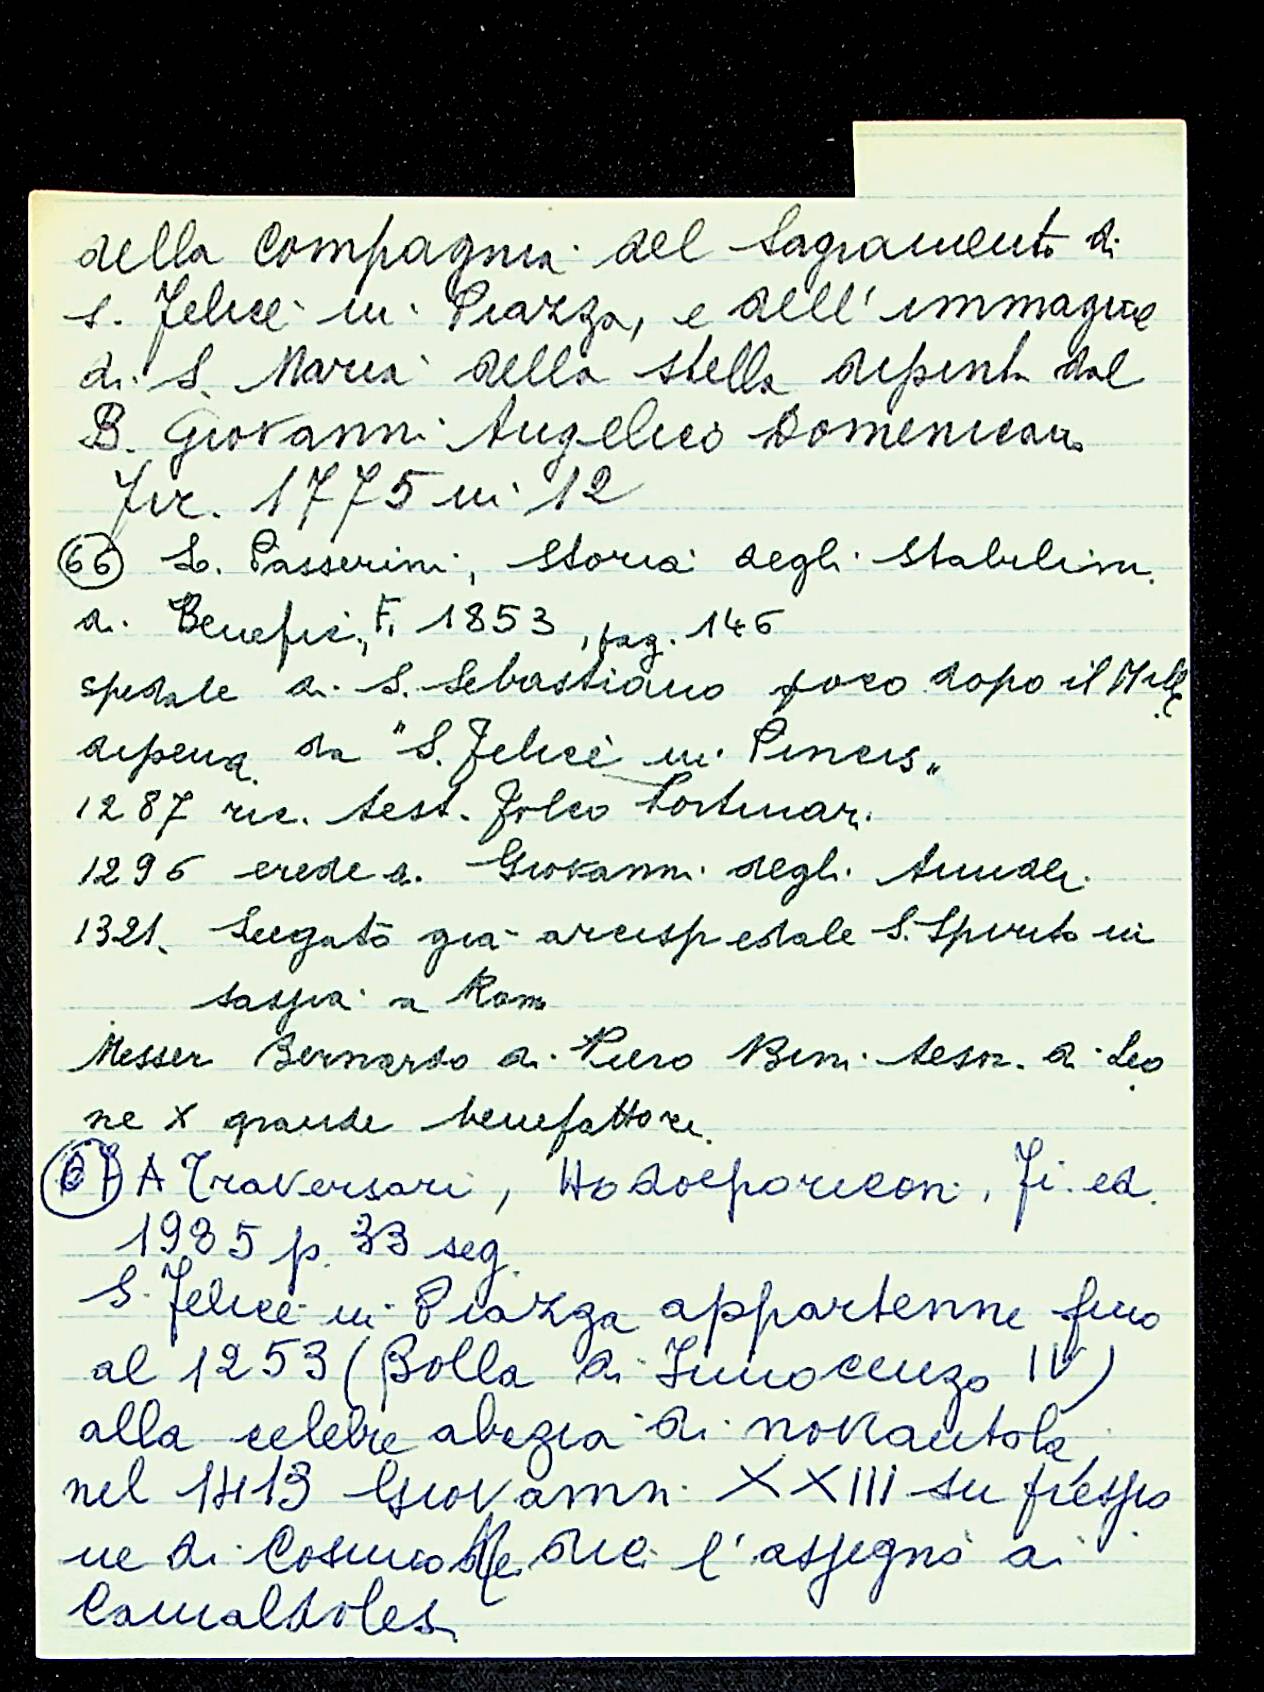 della Compagnia del Sagramento di
S. Felice in Piazza, e dell'immagine
di S. Maria della stella dipinta dal
B. Giovanni Angelico Domenicano
Fir. 1775 in 12
(66) L. Passerini, Storia degli Stabilim.
di Benefic., F. 1853, pag. 146
spedale di S. Sebastiano poco dopo il Mille
dipend. da "S. Felice in Pincis"
1287 ric. test. Folco Portinari
1296 erede di Giovanni degli
1321. già arcispedale S. Spirito in
sassia a Roma
Messer Bernardo di Piero Bini tesor. di Leo
ne X grande benefattore.
(67) A Traversari, Hodoeporicon, Fi. ed.
1985 p. 33 seg.
S. Felice in Piazza appartenne fino
al 1253 (Bolla di Innocenzo IV)
alla celebre abazia di nonantola,
nel 1413 Giovanni XXIII su pressio
ne di Cosimo Medici l'assegnò ai
Camaldolesi